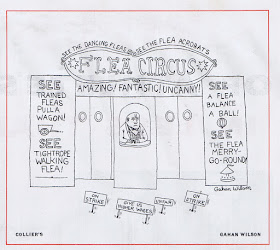 SEE THE DANCING FLEAS
SEE THE FLEA ACROBATS
FLEA CIRCUS
AMAZING! FANTASTIC! UNCANNY!
SEE
TRAINED
FLEAS
PULL A
WAGON!
SEE
TIGHTROPE
WALKING
FLEA!
SEE
A FLEA
BALANCE
A BALL!
SEE
THE FLEA
MERRY-
GO-ROUND!
ON
STRIKE!
GIVE US
HIGHER WAGES
UNFAIR
ON
STRIKE!
Gahan Wilson
COLLIER'S
GAHAN WILSON